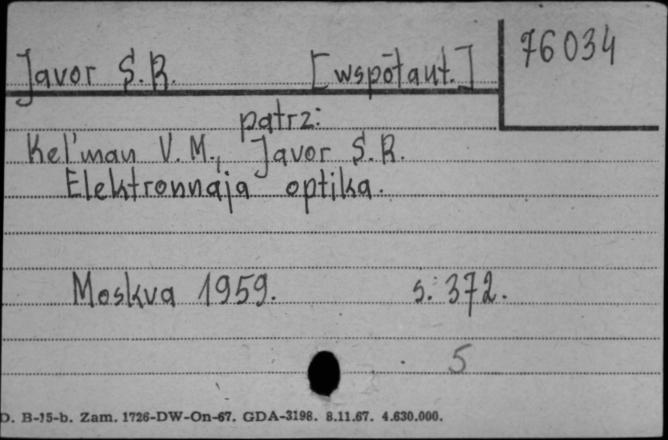 Javor S.R. [współaut.] 76034
patrz:
Kel'man V.M., Javor S.R.
Elektronnaja optika.
Moskva 1959. s. 372.
5
D. B-15-b. Zam. 1726-DW-On-67. GDA-3198. 8.11.67. 4.630.000.